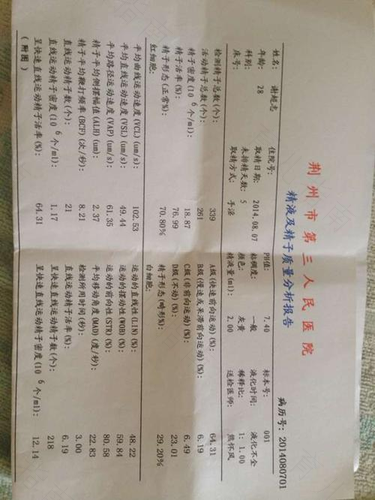 荆州市第三人民医院
精液及精子质量分析报告
病历号: 2014080701
姓名: 谢超志 住院号: PH值: 7.40 标本号: 001
年龄: 28 取精日期: 2014.08.07 粘稠度: 一般 液化时间: 液化不全
科别: 未排精天数: 5 颜色: 灰黄 稀释比: 1: 1.00
床号: 取精方式: 手淫 精液量(ml): 2.00 送检医师: 熊怀风
检测精子总数(个): 339 A级(快速前向运动)%: 64.31
活动精子总数(个): 261 B级(慢速或呆滞前向运动)%: 6.19
精子密度(10^6个/ml): 18.87 C级(非前向运动)%: 6.49
精子活率(%): 76.99 D级(不动)%: 23.01
精子形态(正常%): 70.80% 精子形态(畸形%): 29.20%
红细胞: 白细胞:
平均曲线运动速度(VCL)(um/s): 102.53 运动的直线性(LIN)(%): 48.22
平均直线运动速度(VSL)(um/s): 49.44 运动的摆动性(WOB)(%): 59.84
平均路径运动速度(VAP)(um/s): 61.35 运动的前向性(STR)(%): 80.58
精子平均侧摆幅值(ALH)(um): 2.37 平均移动角度(MAD)(度/秒): 22.83
精子平均鞭打频率(BCF)(次/秒): 8.21 检测所用时间(秒): 3.00
直线运动精子数(个): 21 直线运动精子活率(%): 6.19
直线运动精子密度(10^6个/ml): 1.17 呈快速直线运动精子数(个): 218
呈快速直线运动精子活率(%): 64.31 呈快速直线运动精子密度(10^6个/ml): 12.14
(附图)